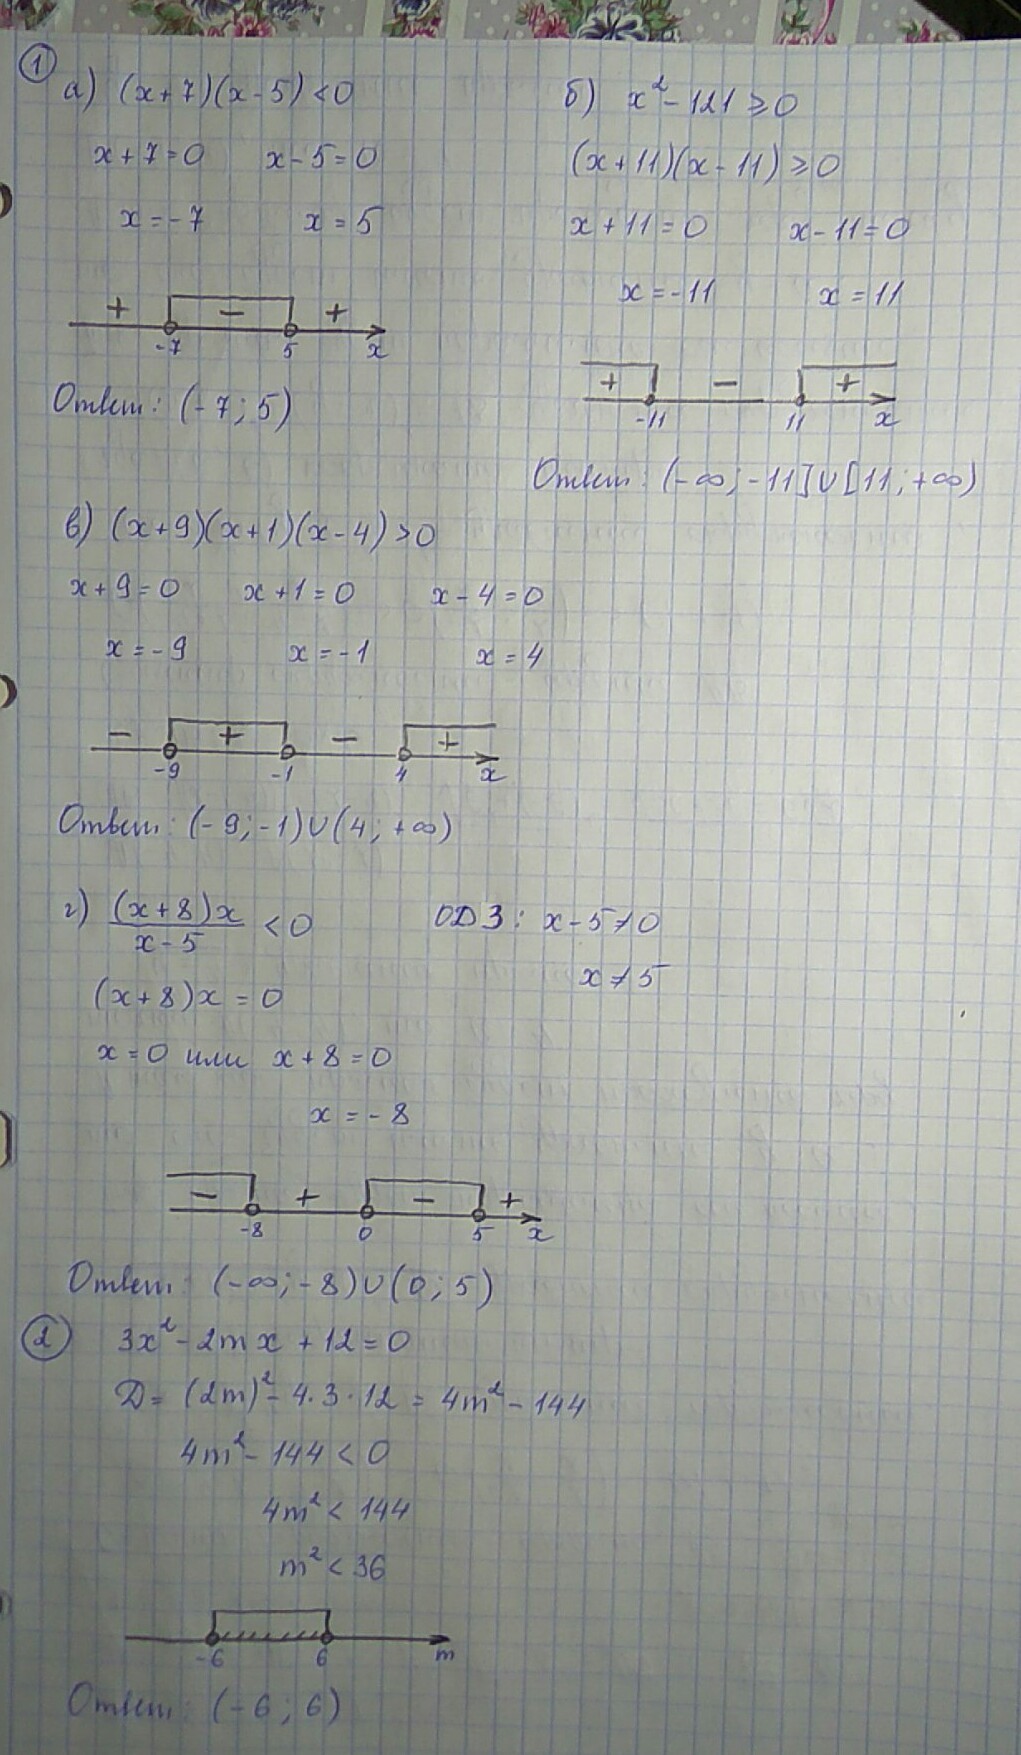 1
а) (x+7)(x-5)<0
x+7=0 x-5=0
x=-7 x=5
+ - +
-7 5 x
Ответ: (-7; 5)
б) x²-121≥0
(x+11)(x-11)≥0
x+11=0 x-11=0
x=-11 x=11
+ - +
-11 11 x
Ответ: (-∞; -11]∪[11; +∞)
в) (x+9)(x+1)(x-4)>0
x+9=0 x+1=0 x-4=0
x=-9 x=-1 x=4
- + - +
-9 -1 4 x
Ответ: (-9; -1)∪(4; +∞)
г) (x+8)x / x-5 <0
ОДЗ: x-5≠0
x≠5
(x+8)x=0
x=0 или x+8=0
x=-8
- + - +
-8 0 5 x
Ответ: (-∞; -8)∪(0; 5)
2 3x²-2mx+12=0
D=(2m)²-4·3·12=4m²-144
4m²-144<0
4m²<144
m²<36
-6 6 m
Ответ: (-6; 6)